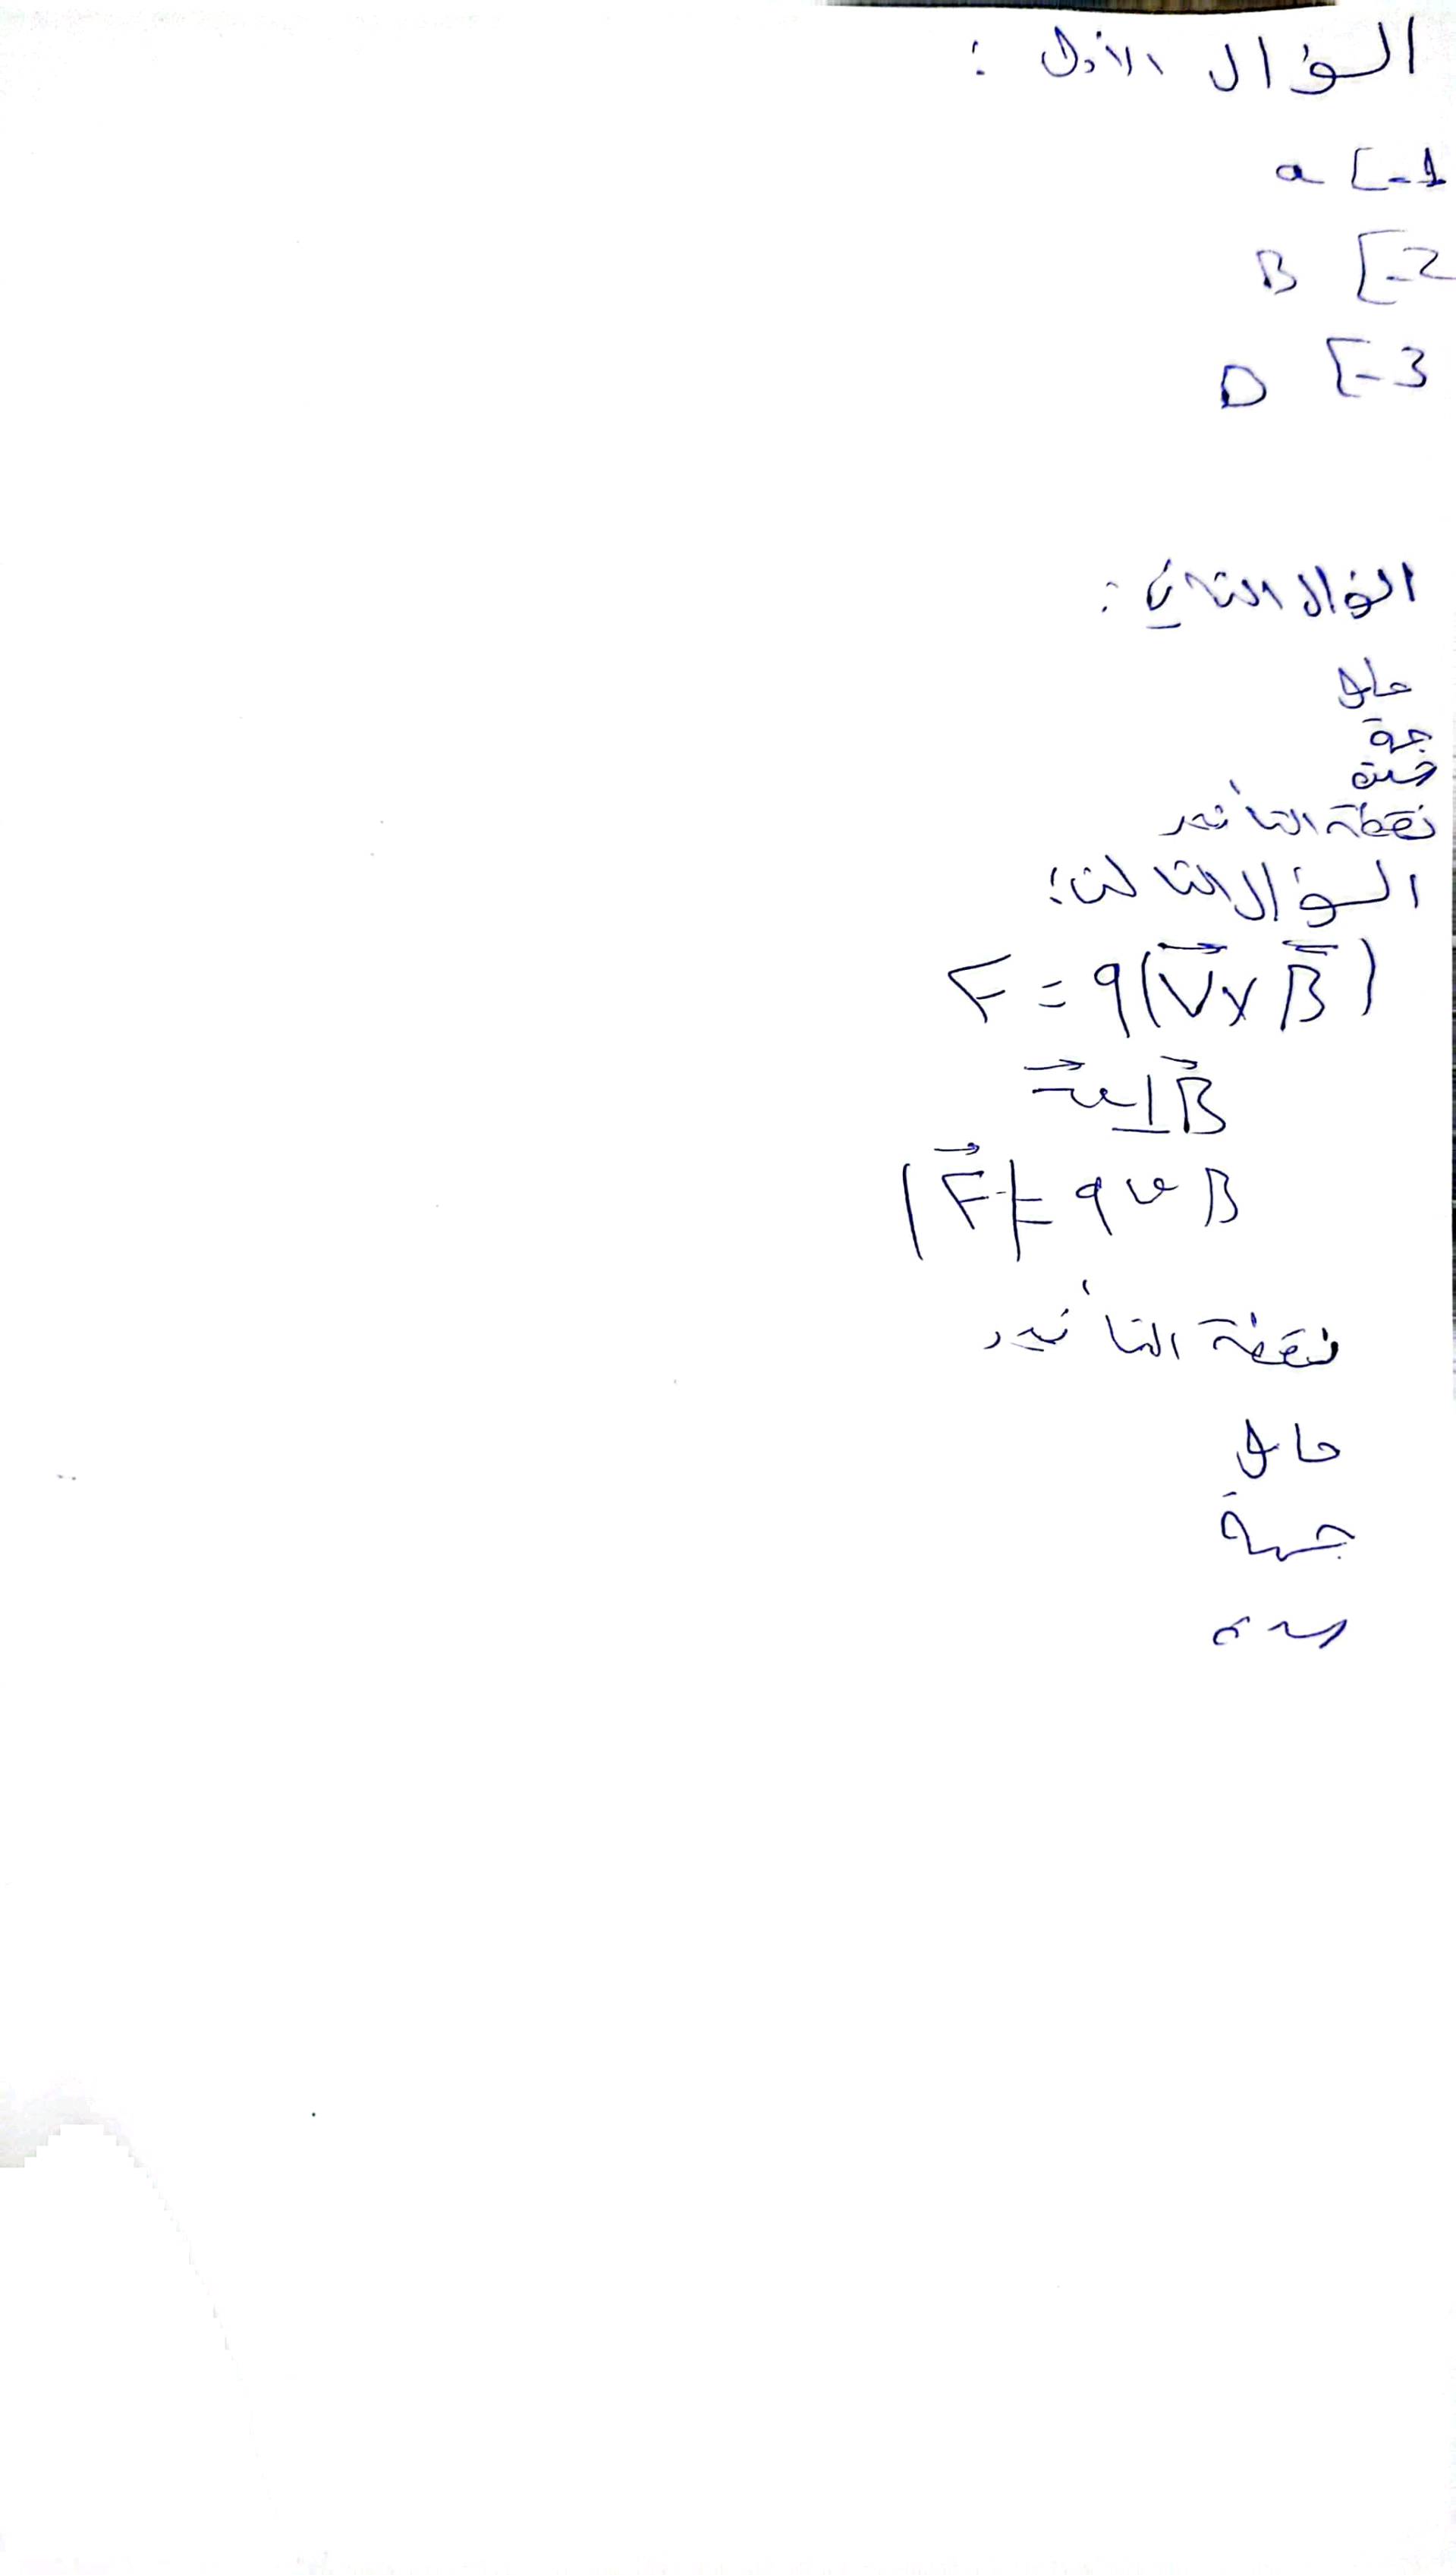 السؤال الأول :
a [-1
B [-2
D [-3
السؤال الثاني :
حامل
جهة
شدة
نقطة التأثير
السؤال الثالث :
F = q(\vec{V} x \vec{B})
\vec{v} ⊥ \vec{B}
|\vec{F}| = q v B
نقطة التأثير
حامل
جهة